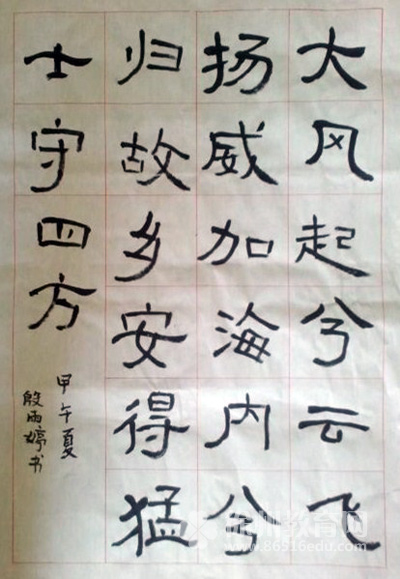 大风起兮云飞
扬威加海内兮
归故乡安得猛
士守四方
甲午夏
殷雨婷书
徐州教育网
www.86516edu.com